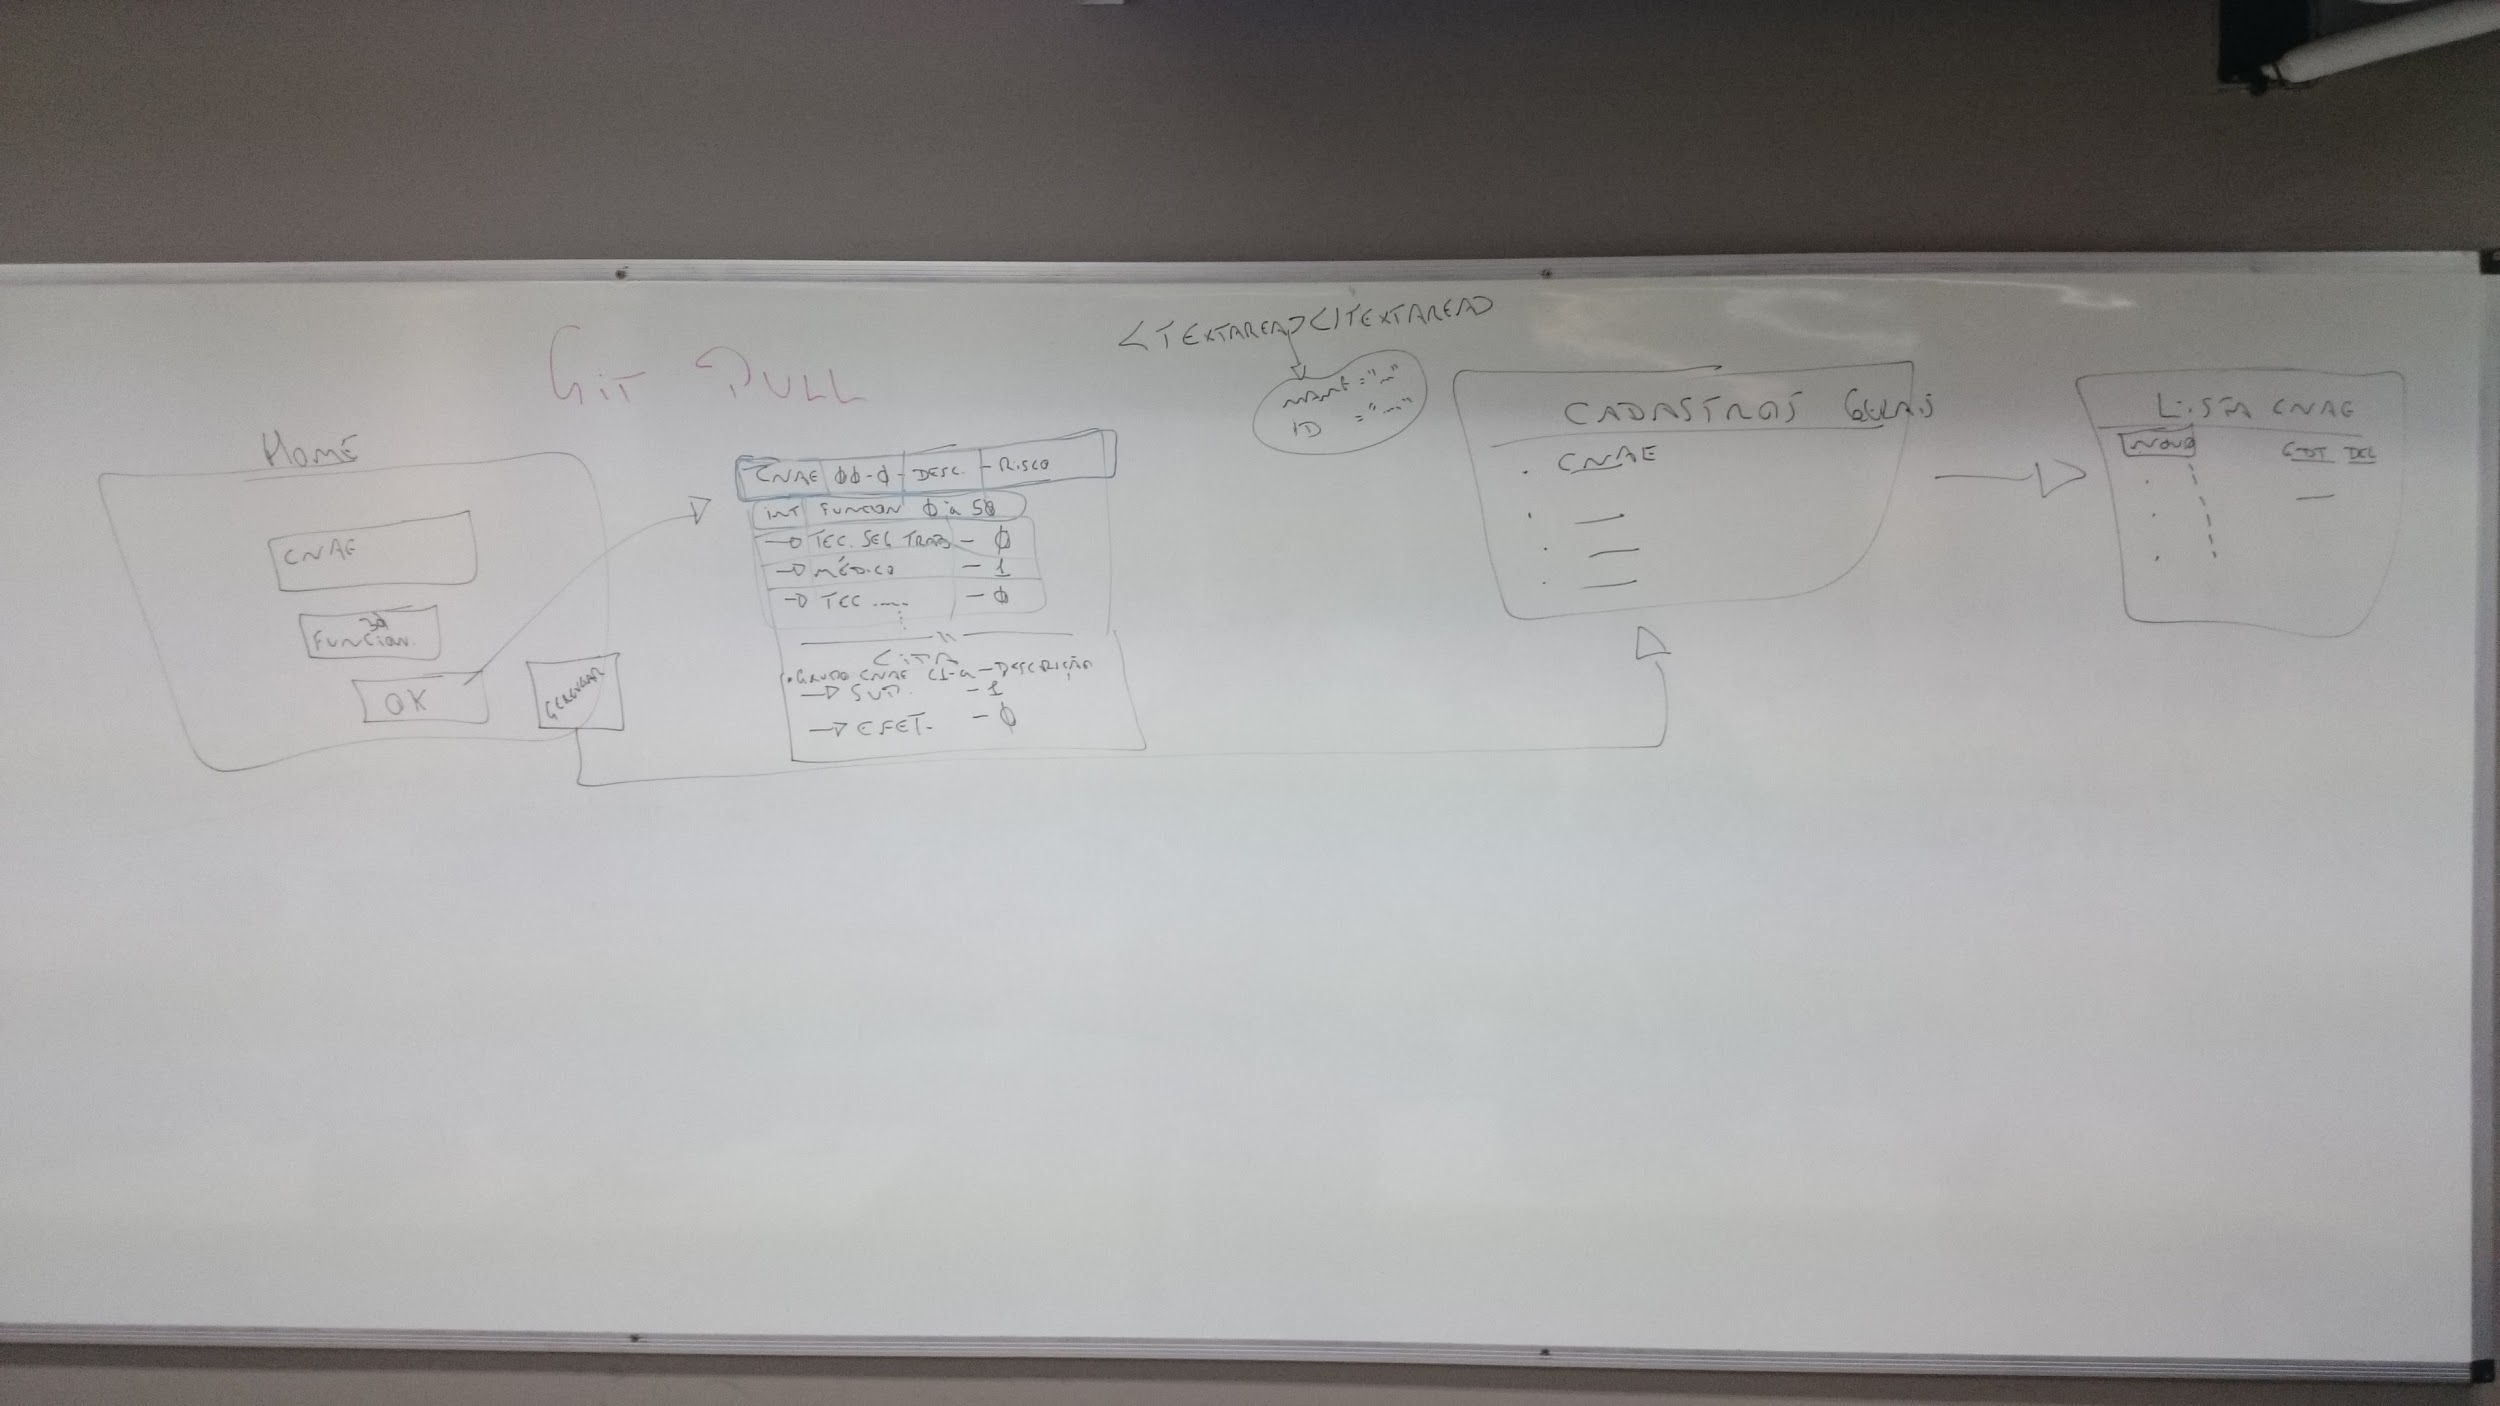 GIT PULL
HOME
CNAE
30
FUNCION.
OK
GERENCIAR
CNAE 00-0 - DESC. - RISCO
INT FUNCION 0 à 50
→ TEC. SEG TRAB - 0
→ MÉDICO - 1
→ TEC ..... - 0
CIPA
• GRUPO CNAE C1-a - DESCRIÇÃO
→ SUP. - 1
→ EFET. - 0
<TEXTAREA></TEXTAREA>
NAME = "..."
ID = "..."
CADASTROS GERAIS
• CNAE
LISTA CNAE
NOVO
EDT DEL